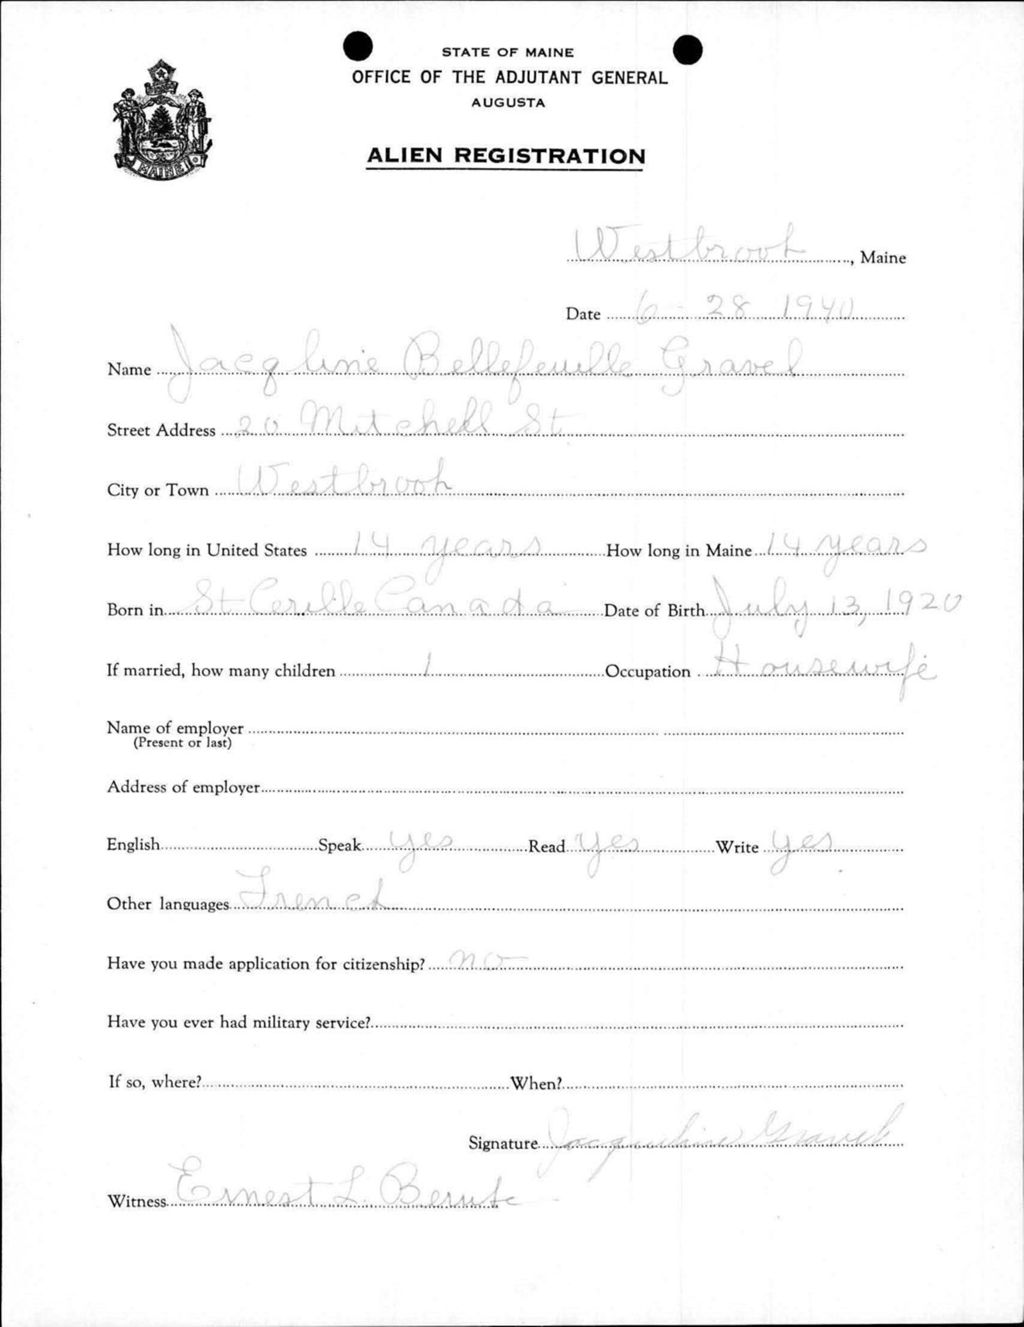 STATE OF MAINE
OFFICE OF THE ADJUTANT GENERAL
AUGUSTA
ALIEN REGISTRATION
MAINE
Westbrook, Maine
Date 6 - 28 1940
Name Jacqline Bellefeuille Gravel
Street Address 20 Mitchell St.
City or Town Westbrook
How long in United States 14 years How long in Maine 14 years
Born in St Cerille Canada Date of Birth July 13, 1920
If married, how many children 1 Occupation Housewife
Name of employer
(Present or last)
Address of employer
English Speak yes Read Yes Write yes
Other languages French
Have you made application for citizenship? no
Have you ever had military service?
If so, where? When?
Signature Jacqueline Gravel
Witness Ernest L.